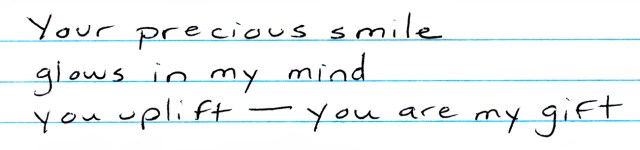 Your precious smile
glows in my mind
you uplift — you are my gift